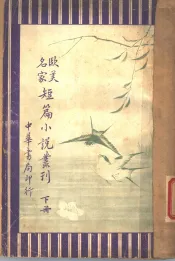 歐美
名家
短篇小說叢刊
下冊
中華書局印行